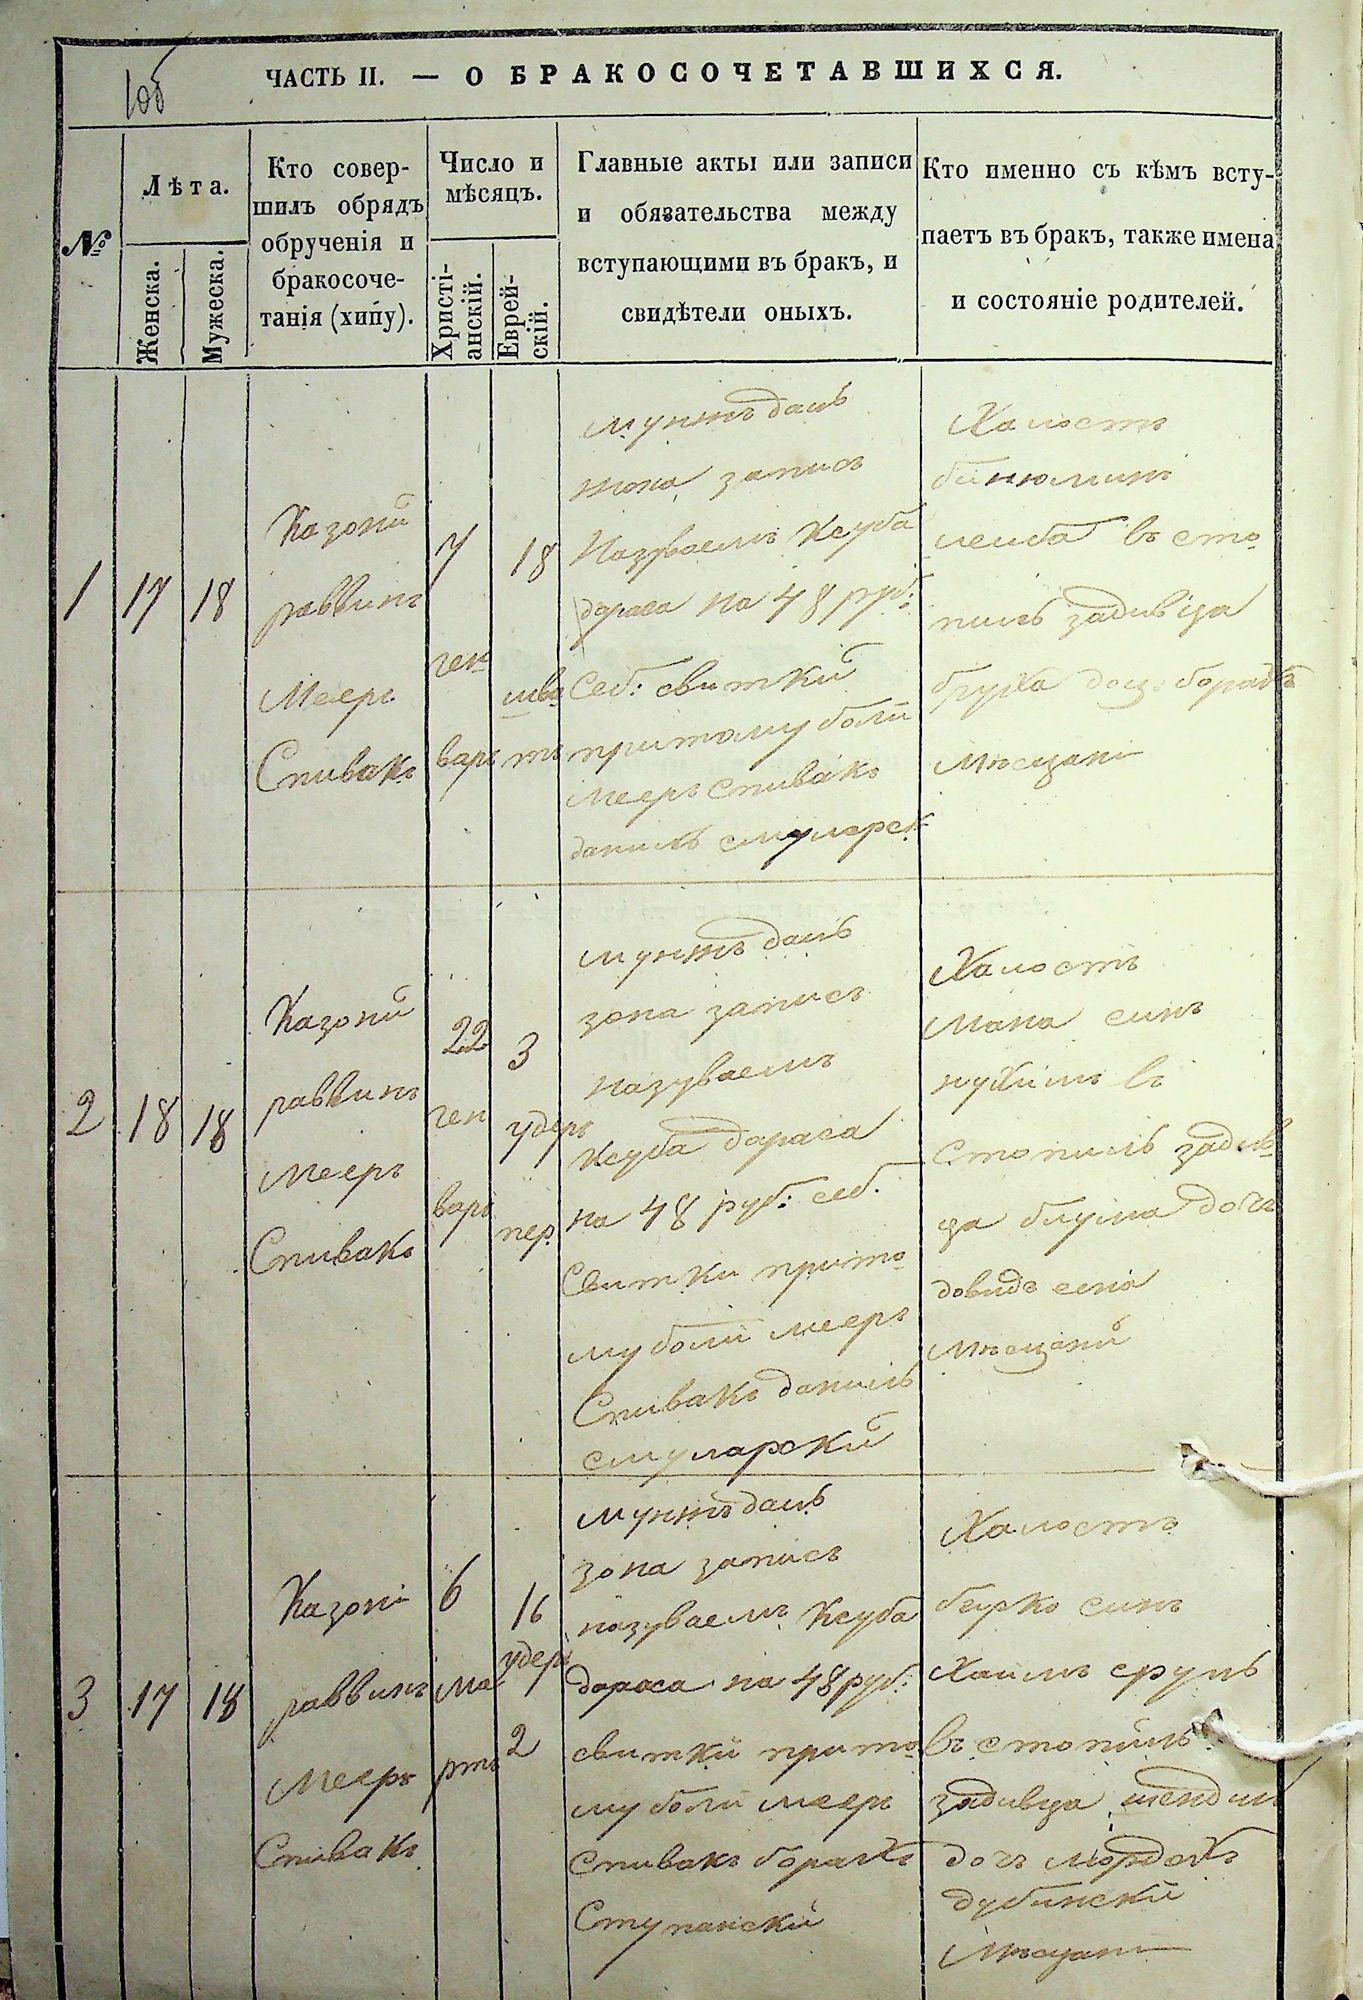 ЧАСТЬ II. — О БРАКОСОЧЕТАВШИХСЯ.
№
Лѣта.
Женска.
Мужеска.
Кто совер-
шилъ обрядъ
обрученія и
бракосоче-
танія (хипу).
Число и
мѣсяцъ.
Христі-
анскій.
Еврей-
скій.
Главные акты или записи
и обязательства между
вступающими въ бракъ, и
свидѣтели оныхъ.
Кто именно съ кѣмъ всту-
паетъ въ бракъ, также имена
и состояніе родителей.
1
17
18
Казони
раввинъ
Мееръ
Спивакъ
7
ген
варъ
18
шва
тъ
мунжъ далъ
жона записъ
Назуваемъ Ксуба
дараса на 48 руб:
Себ: свитки
притому боли
мееръ спивакъ
данилъ смулярск
Халостъ
бинюминъ
лейба въ сто
пилъ задивица
бруха доч. борахъ
мѣщани
2
18
18
Казони
раввинъ
мееръ
Спивакъ
22
ген
варъ
3
удеръ
пер.
мунжъ далъ
зона записъ
назуваемъ
Ксуба дараса
на 48 руб: себ.
Свитки прито
му боли мееръ
Спивакъ данилъ
смуларский
Халостъ
мана синъ
нухимъ въ
Стопилъ задив
ца блума дочъ
довидъ
мѣщани
3
17
18
Казони
раввинъ
мееръ
Спивакъ
6
ма
ртъ
16
удеръ
2
мунжъ далъ
зона записъ
назуваемъ Ксуба
дараса на 48 руб:
свитки прито
му боли мееръ
Спивакъ борахъ
Ступански
Халостъ
берко синъ
Хаимъ срулъ
въ стопилъ
задивца шендил
дочъ мордохъ
дубински
мѣщани